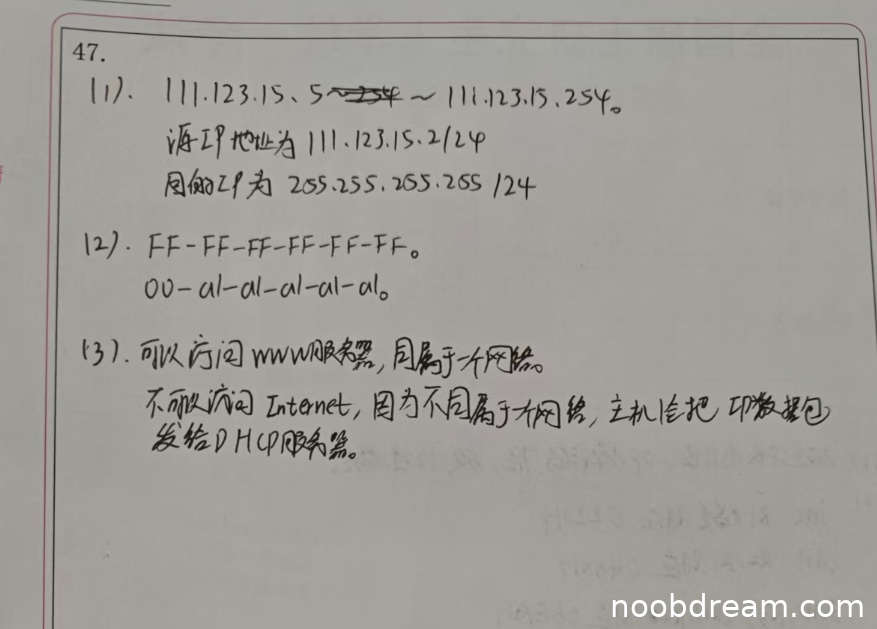 47.
(1). 111.123.15、5~254 ~ 111.123.15.254。
源IP地址为 111.123.15.2/24
目的IP为 255.255.255.255 /24
(2). FF-FF-FF-FF-FF-FF。
00-a1-a1-a1-a1-a1。
(3). 可以访问WWW服务器,同属于一个网络。
不可以访问 Internet, 因为不同属于一个网络, 主机会把 IP数据包
发给DHCP服务器。
noobdream.com